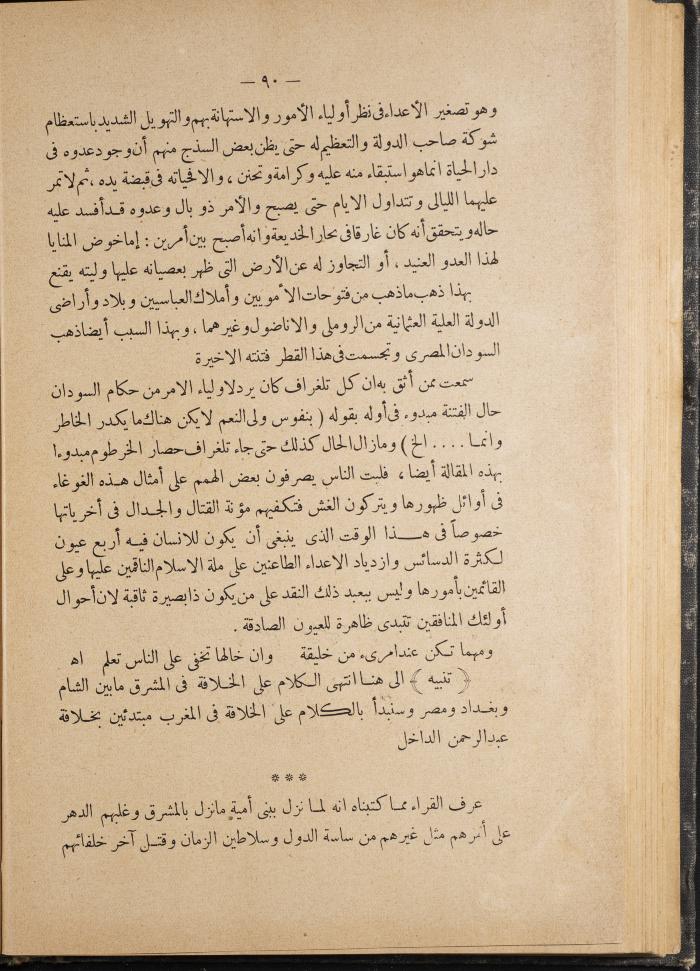 — ٩٠ —
وهو تصغير الأعداء فى نظر أولياء الأمور والاستهانة بهم والتهويل الشديد باستعظام
شوكة صاحب الدولة والتعظيم له حتى يظن بعض السذج منهم أن وجود عدوه فى
دار الحياة انما هو استبقاء منه عليه وكرامة وتحنن ، والا فحياته فى قبضة يده ، ثم لا تمر
عليهما الليالى وتتداول الايام حتى يصبح والأمر ذو بال وعدوه قد أفسد عليه
حاله ويتحقق أنه كان غارقا فى بحار الخديعة وانه أصبح بين أمرين : إما خوض المنايا
لهذا العدو العنيد ، أو التجاوز له عن الأرض التى ظهر بعصيانه عليها وليته يقنع
بهذا ذهب ما ذهب من فتوحات الأمويين وأملاك العباسيين وبلاد وأراضى
الدولة العلية العثمانية من الروملى والاناضول وغيرهما ، وبهذا السبب أيضا ذهب
السودان المصرى وتجسمت فى هذا القطر فتنته الاخيرة
سمعت ممن أثق به ان كل تلغراف كان يرد لاولياء الامر من حكام السودان
حال الفتنة مبدوء فى أوله بقوله ( بنفوس ولى النعم لا يكن هناك ما يكدر الخاطر
وانما .... الخ ) وما زال الحال كذلك حتى جاء تلغراف حصار الخرطوم مبدوءا
بهذه المقالة أيضا ، فليت الناس يصرفون بعض الهمم على أمثال هذه الغوغاء
فى أوائل ظهورها ويتركون الغش فتكفيهم مؤنة القتال والجدال فى أخرياتها
خصوصاً فى هذا الوقت الذى ينبغى أن يكون للانسان فيه أربع عيون
لكثرة الدسائس وازدياد الاعداء الطاعنين على ملة الاسلام الناقمين عليها وعلى
القائمين بأمورها وليس ببعيد ذلك النقد على من يكون ذا بصيرة ثاقبة لان أحوال
أولئك المنافقين تتبدى ظاهرة للعيون الصادقة .
ومهما تكن عند امرىء من خليقة وان خالها تخفى على الناس تعلم اه
﴿ تنبيه ﴾ الى هنا انتهى الكلام على الخلافة فى المشرق ما بين الشام
وبغداد ومصر وسنبدأ بالكلام على الخلافة فى المغرب مبتدئين بخلافة
عبد الرحمن الداخل
* * *
عرف القراء مما كتبناه انه لما نزل ببنى أمية ما نزل بالمشرق وغلبهم الدهر
على أمرهم مثل غيرهم من ساسة الدول وسلاطين الزمان وقتل آخر خلفائهم